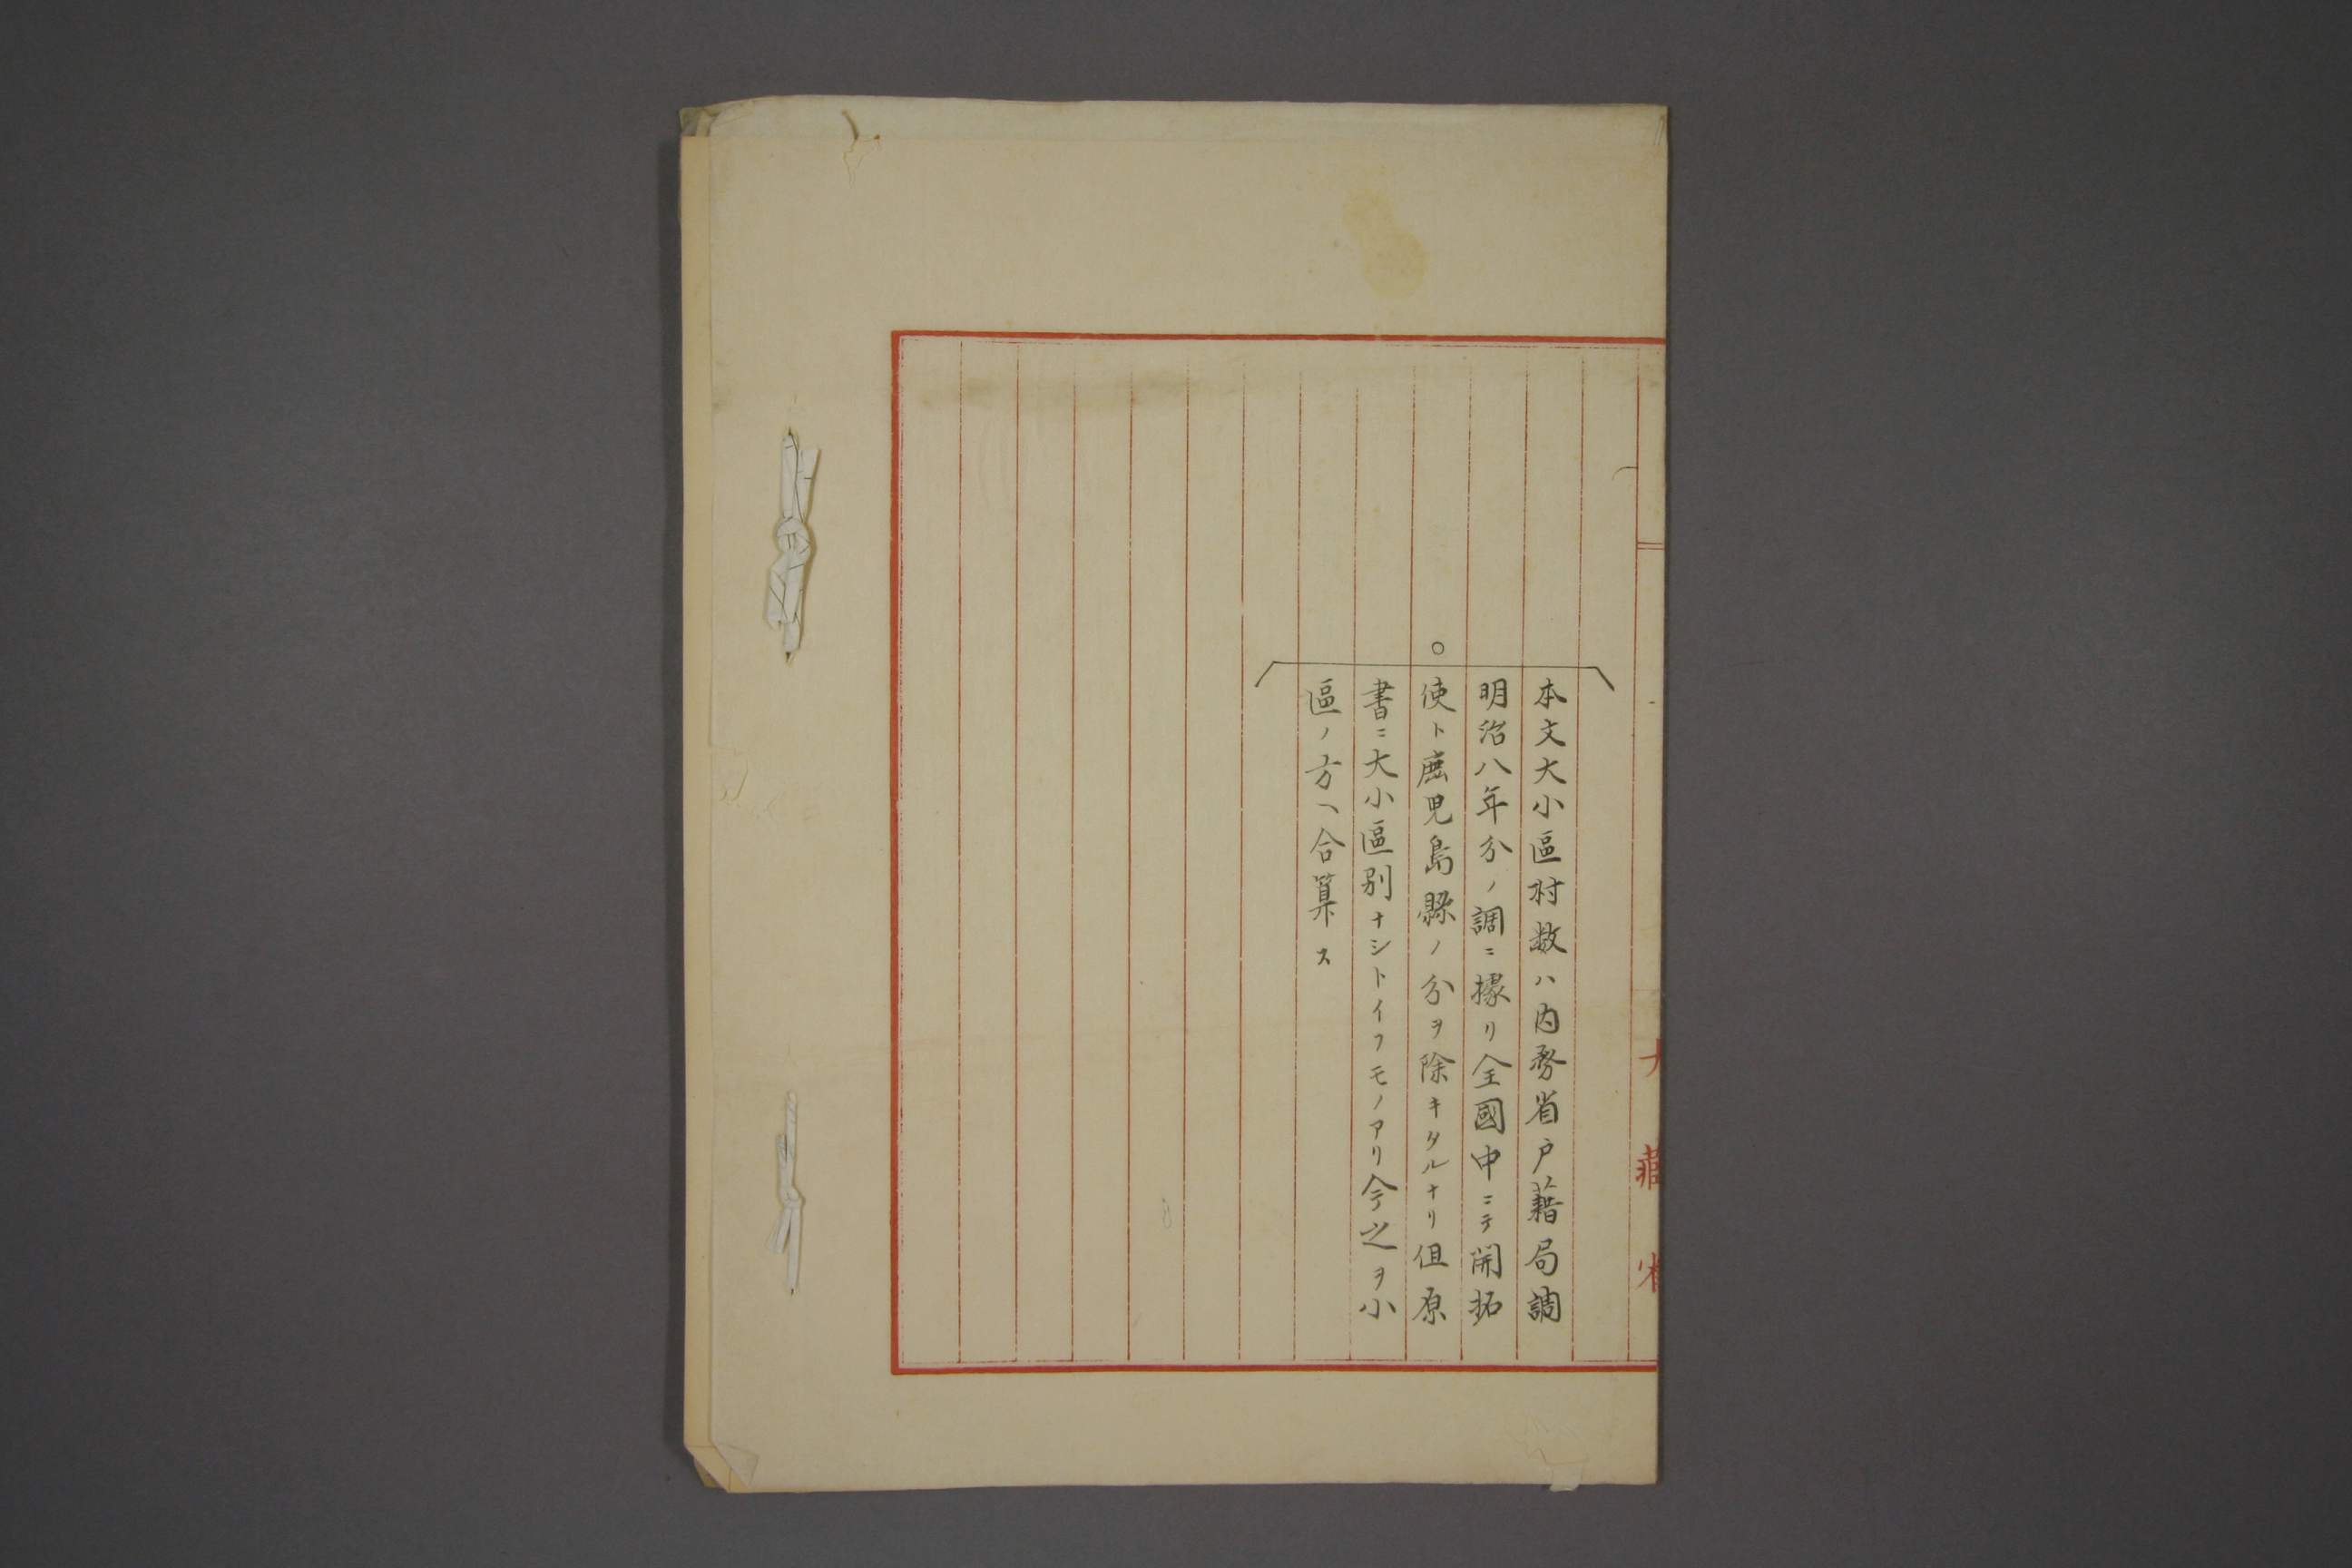 大藏省
本文大小區村数ハ内務省戸藉局調
明治八年分ノ調ニ據リ全國中ニテ開拓
○使ト鹿児島縣ノ分ヲ除キタルナリ但原
書ニ大小區別ナシトイフモノアリ今之ヲ小
區ノ方ヘ合算ス